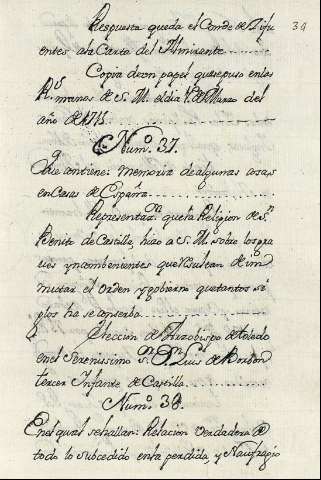 Respuesta que da el Conde de Sifu
39
entes ala Carta del Almirante
Copia de un papel que se puso en las
R.s manos de S. M. el dia 1. de Marzo del
año de 1715
Num.o 37.
Que contiene: Memoria de algunas cosas
en Casas de España
Representaz.on que la Religion de S.n
Benito de Castilla, hizo a S. M. sobre los gra
ves ynconbenientes que resultan de inm
mutar el orden y gobierno que tantos si
glos ha se conserba
Eleccion de Arzobispo de toledo
en el Serenissimo S.or D.n Luis de Borbon
tercer Infante de Castilla
Num.o 38.
En el qual se hallan: Relacion verdadera de
todo lo subcedido en la perdida, y Naufragio